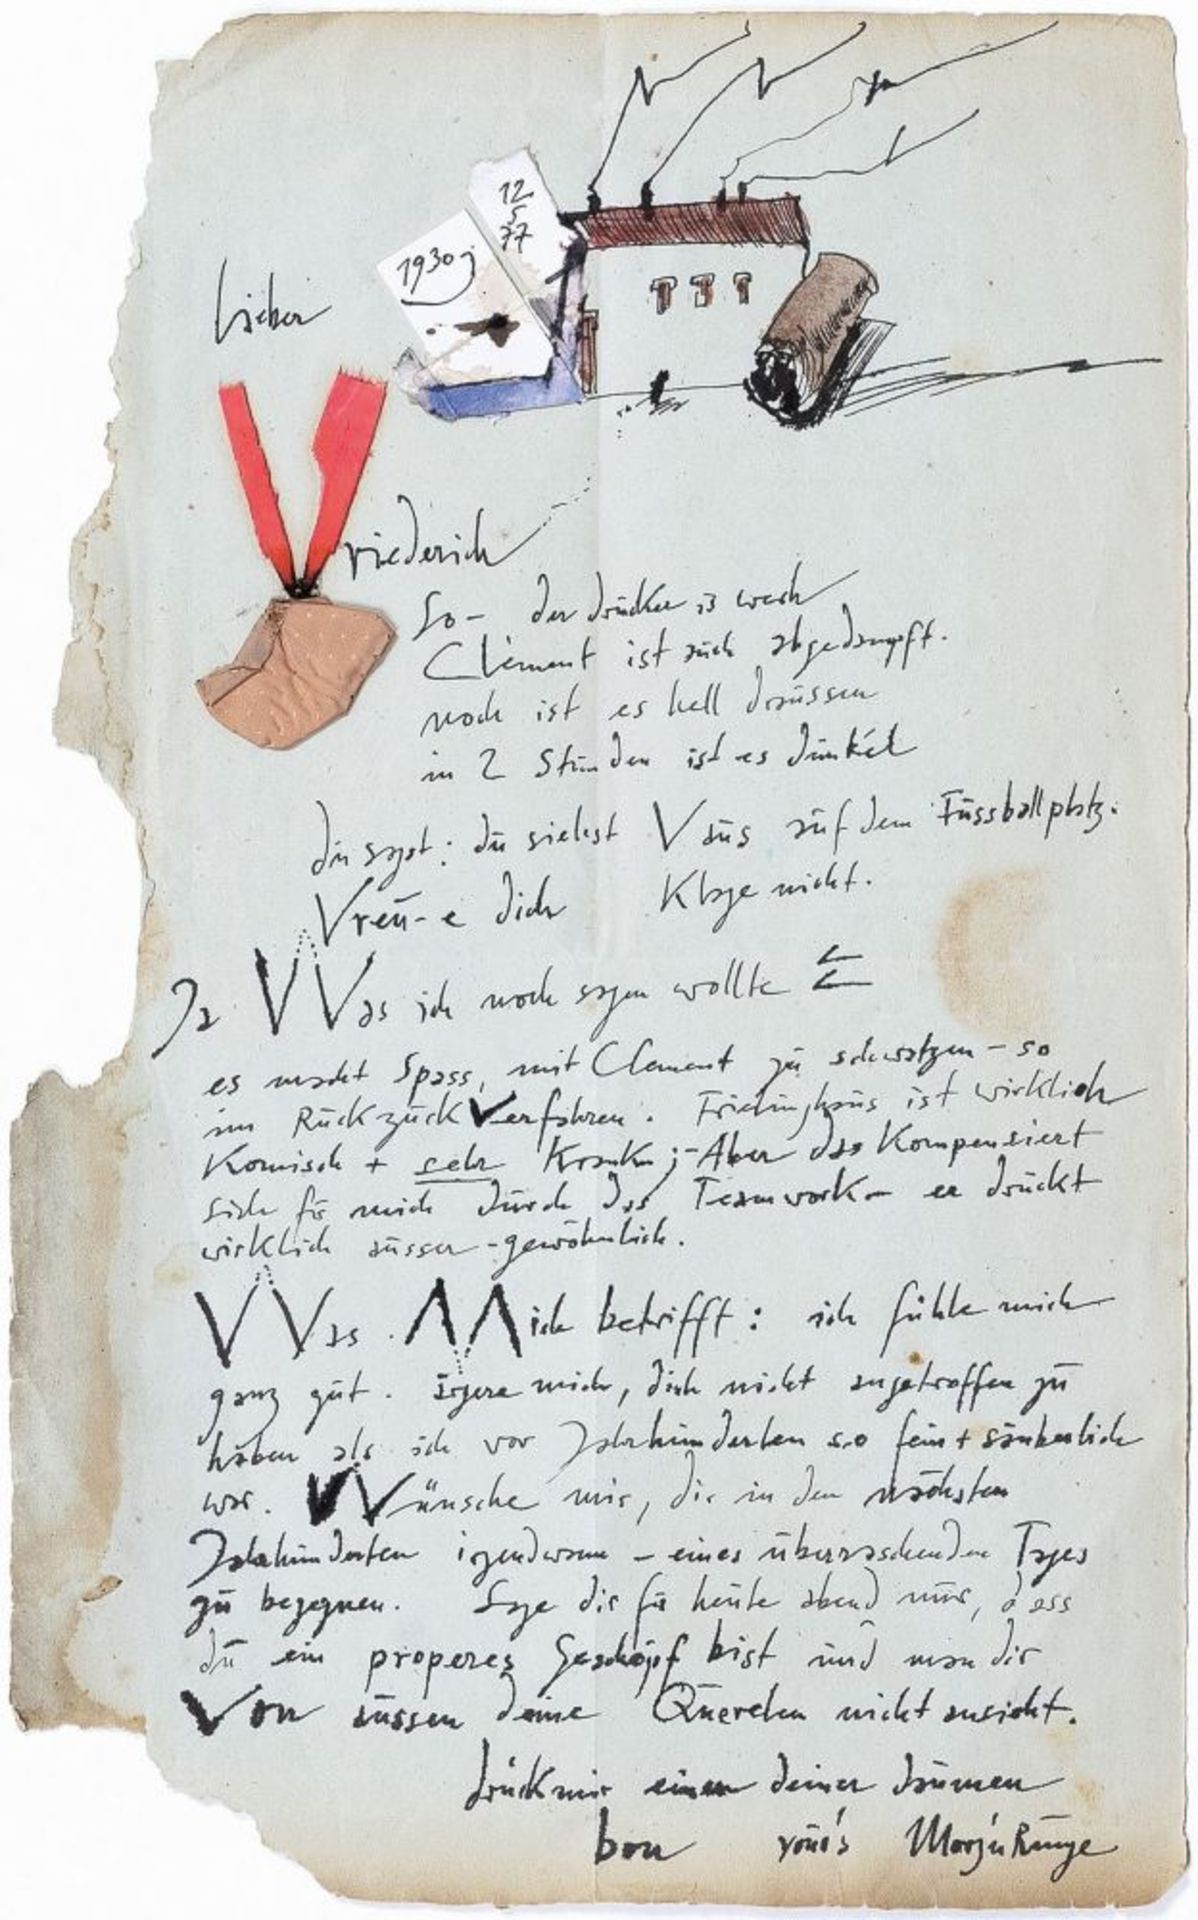 12
5
77
1930 j
Lieber
riederich
So – der drücker is wech
Clément ist auch abgedampft.
noch ist es hell draussen
in 2 Stunden ist es dunkel
du sagst: du siehst Vaus auf dem Fussballplatz.
Vreu-e dich Klage nicht.
Ja VVas ich noch sagen wollte
es macht Spass, mit Clement zu schwatzen – so
im Rückzuck Verfahren. Frielinghaus ist wirklich
Komisch + sehr Krank; – Aber das Kompensiert
sich für mich durch das Teamwork – er drückt
wirklich ausser-gewöhnlich.
VVas Mich betrifft: ich fühle mich
ganz gut. ärgere mich, dich nicht angetroffen zu
haben als ich vor Jahrhunderten so fein + säuberlich
war. Wünsche mir, dir in den nächsten
Jahrhunderten irgendwann – eines überraschenden Tages
zu begegnen. Sage dir für heute abend nur, dass
du ein properes Geschöpf bist und man dir
Von aussen deine Querelen nicht ansieht.
drück mir einen deiner daumen
bon your's Marja Runge